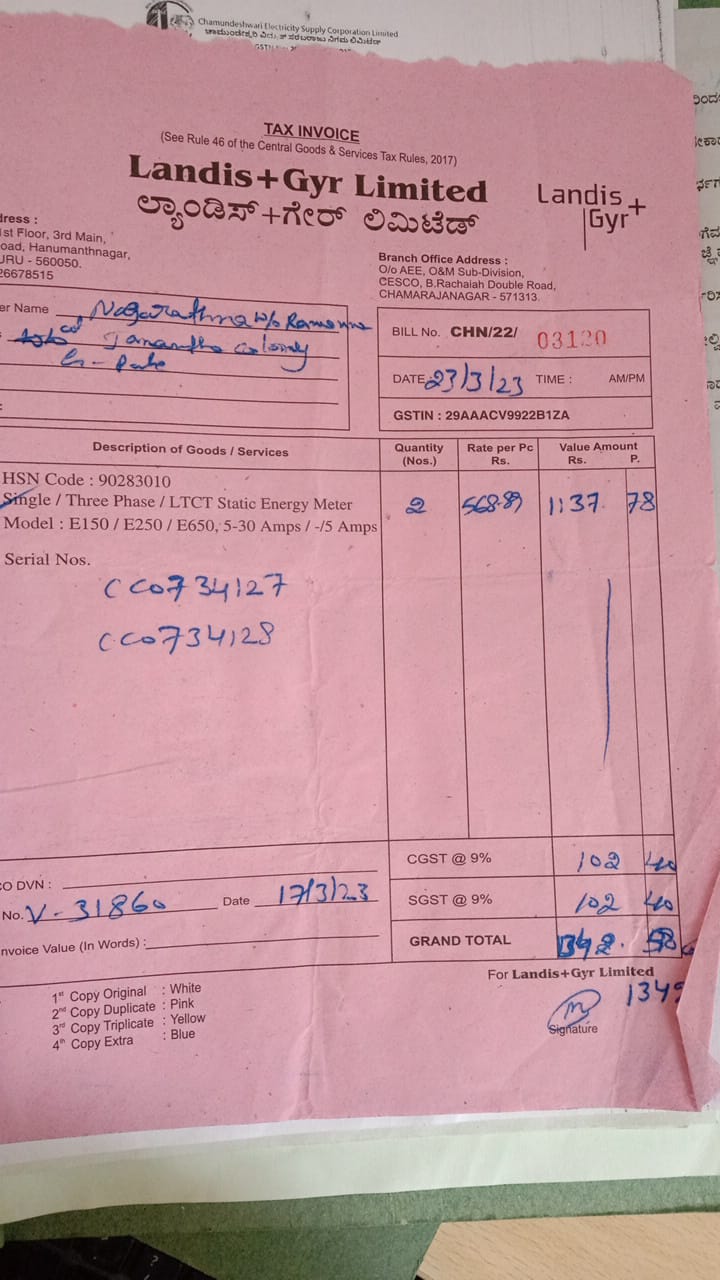 Chamundeshwari Electricity Supply Corporation Limited
ಚಾಮುಂಡೇಶ್ವರಿ ವಿದ್ಯುತ್ ಸರಬರಾಜು ನಿಗಮ ಲಿಮಿಟೆಡ್
TAX INVOICE
(See Rule 46 of the Central Goods & Services Tax Rules, 2017)
Landis+Gyr Limited
ಲ್ಯಾಂಡಿಸ್+ಗೇರ್ ಲಿಮಿಟೆಡ್
Landis+
Gyr
dress :
1st Floor, 3rd Main,
oad, Hanumanthnagar,
URU - 560050.
26678515
Branch Office Address :
O/o AEE, O&M Sub-Division,
CESCO, B.Rachaiah Double Road,
CHAMARAJANAGAR - 571313.
er Name Nagarathna w/o
colony
BILL No. CHN/22/ 03120
DATE 23/3/23 TIME : AM/PM
GSTIN : 29AAACV9922B1ZA
Description of Goods / Services Quantity (Nos.) Rate per Pc Rs. Value Amount Rs. P.
HSN Code : 90283010
Single / Three Phase / LTCT Static Energy Meter 2 568.89 1137. 78
Model : E150 / E250 / E650, 5-30 Amps / -/5 Amps
Serial Nos.
CC0734127
CC0734128
CGST @ 9% 102 40
O DVN :
SGST @ 9% 102 40
No. V-31860 Date 17/3/23
nvoice Value (In Words) :
GRAND TOTAL
For Landis+Gyr Limited
1st Copy Original : White
2nd Copy Duplicate : Pink
3rd Copy Triplicate : Yellow
4th Copy Extra : Blue
Signature